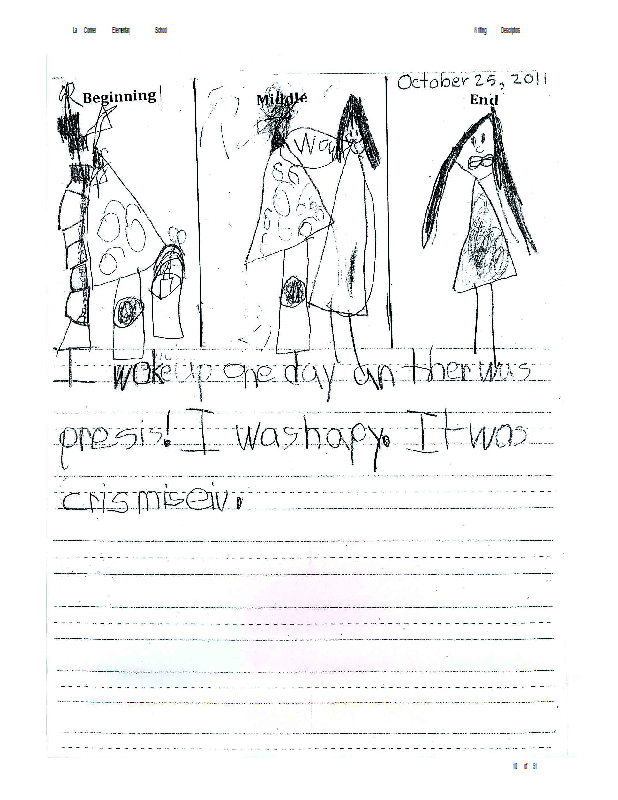 La Conner Elementary School Writing Descriptors
October 25, 2011
Beginning Middle End
Wa
I woke up one day an ther was
presis! I was hapy. It was
crismiseiv.
10 of 51